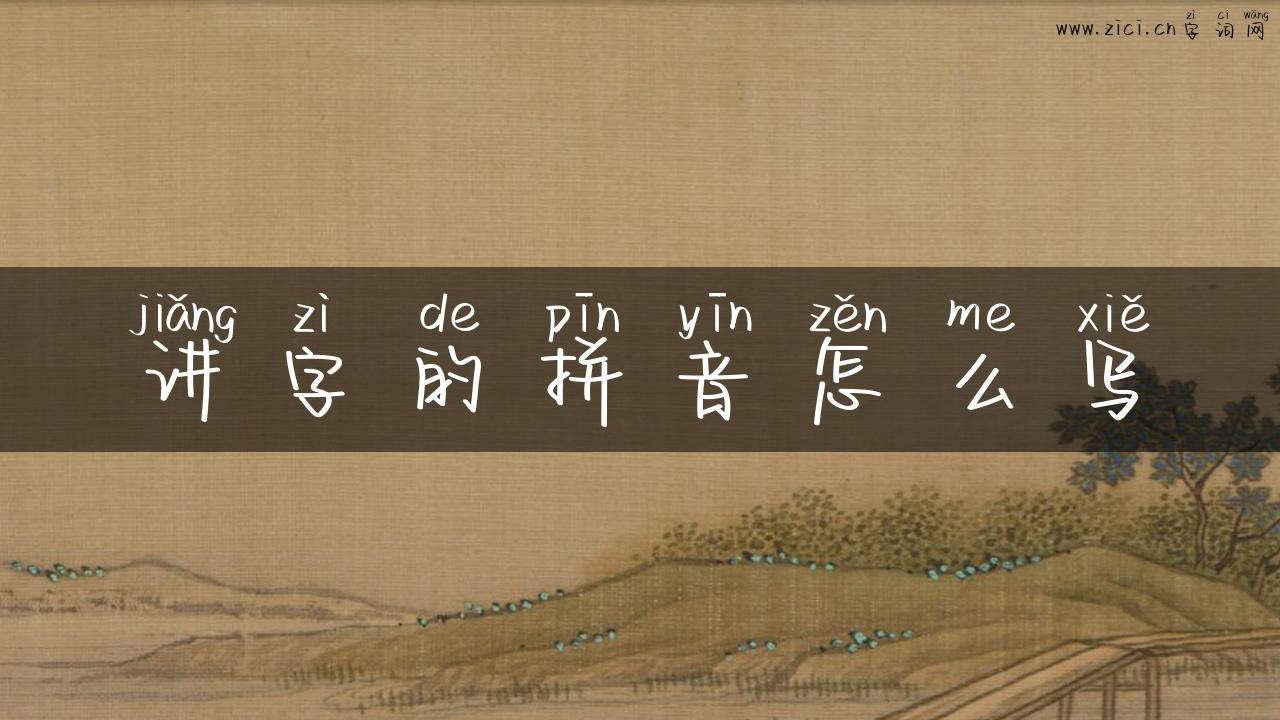 zì cí wǎng
www.zici.cn字词网
jiǎng zì de pīn yīn zěn me xiě
讲字的拼音怎么写